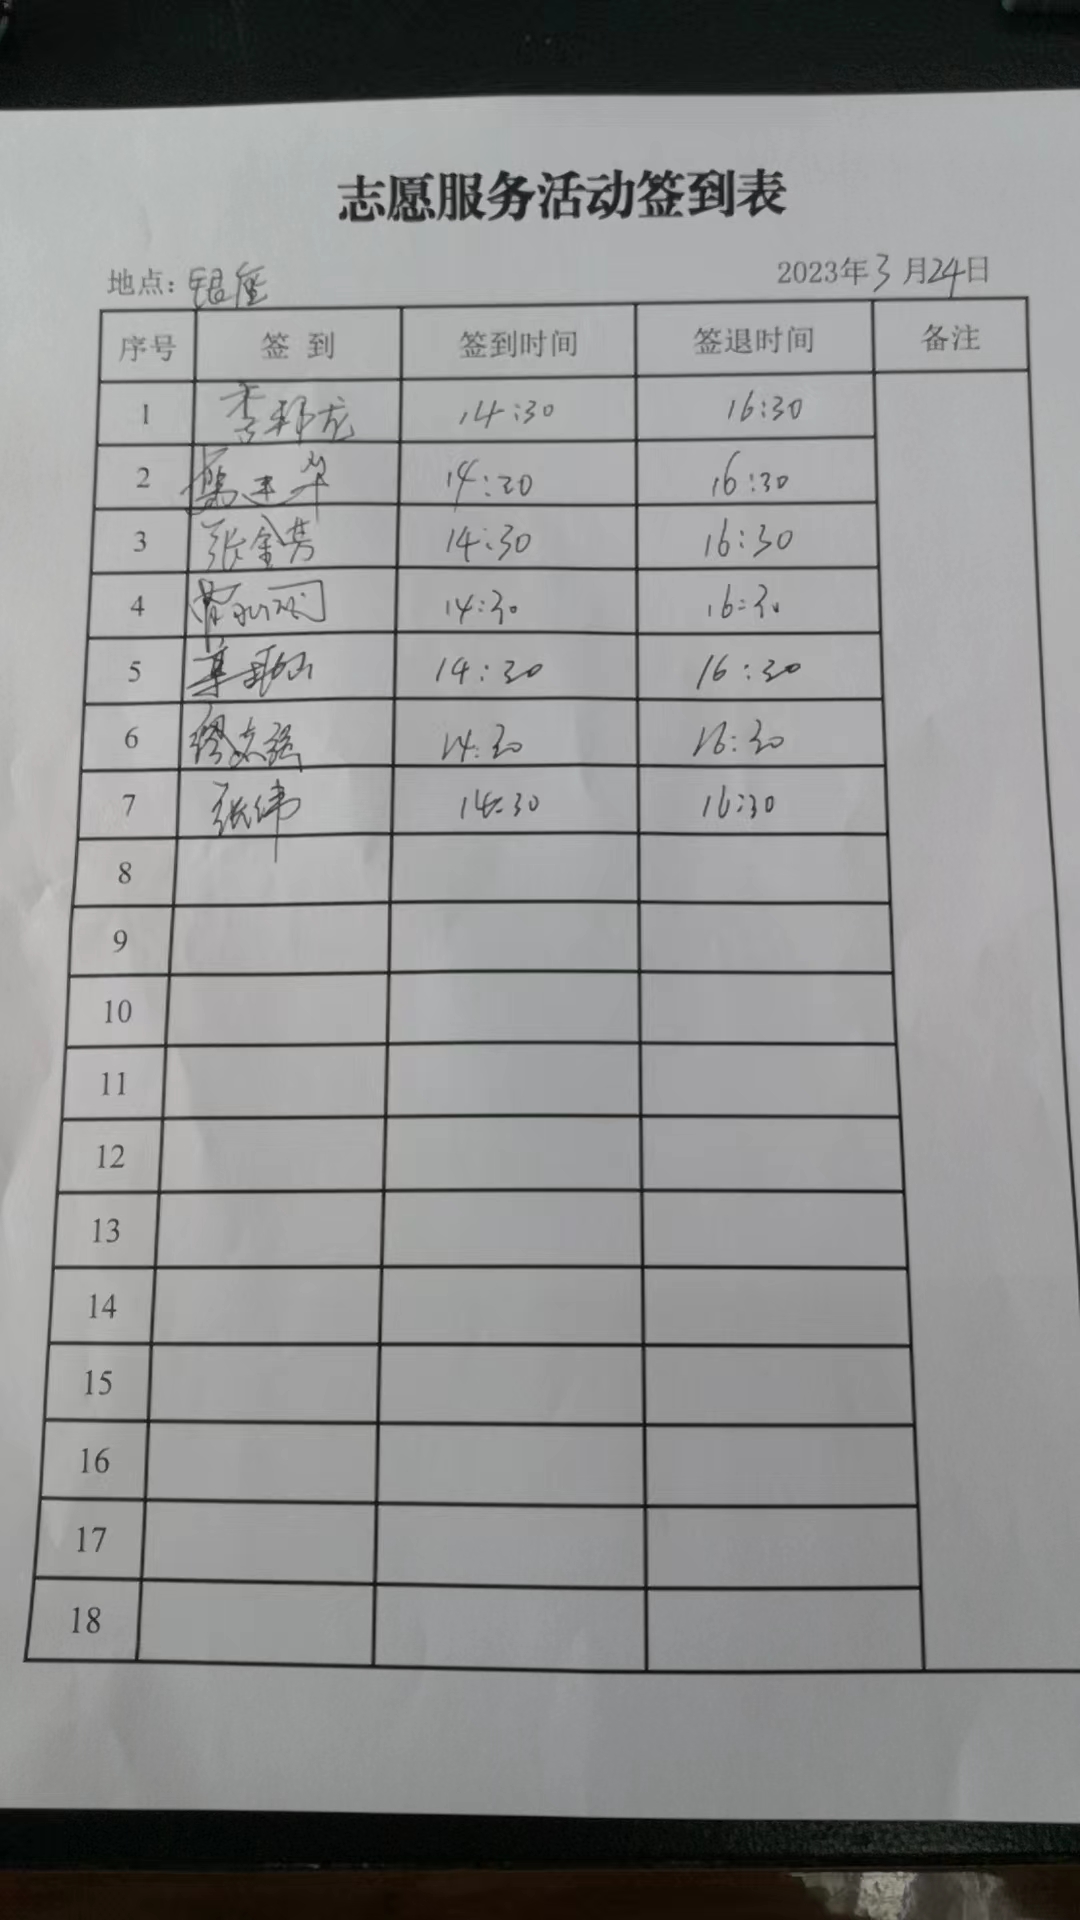 志愿服务活动签到表
地点：银座 2023年3月24日
序号 签 到 签到时间 签退时间 备注
1 李 龙 14:30 16:30
2 建华 14:30 16:30
3 张金芳 14:30 16:30
4 14:30 16:30
5 14:30 16:30
6 缪志强 14:30 16:30
7 张伟 14:30 16:30
8
9
10
11
12
13
14
15
16
17
18